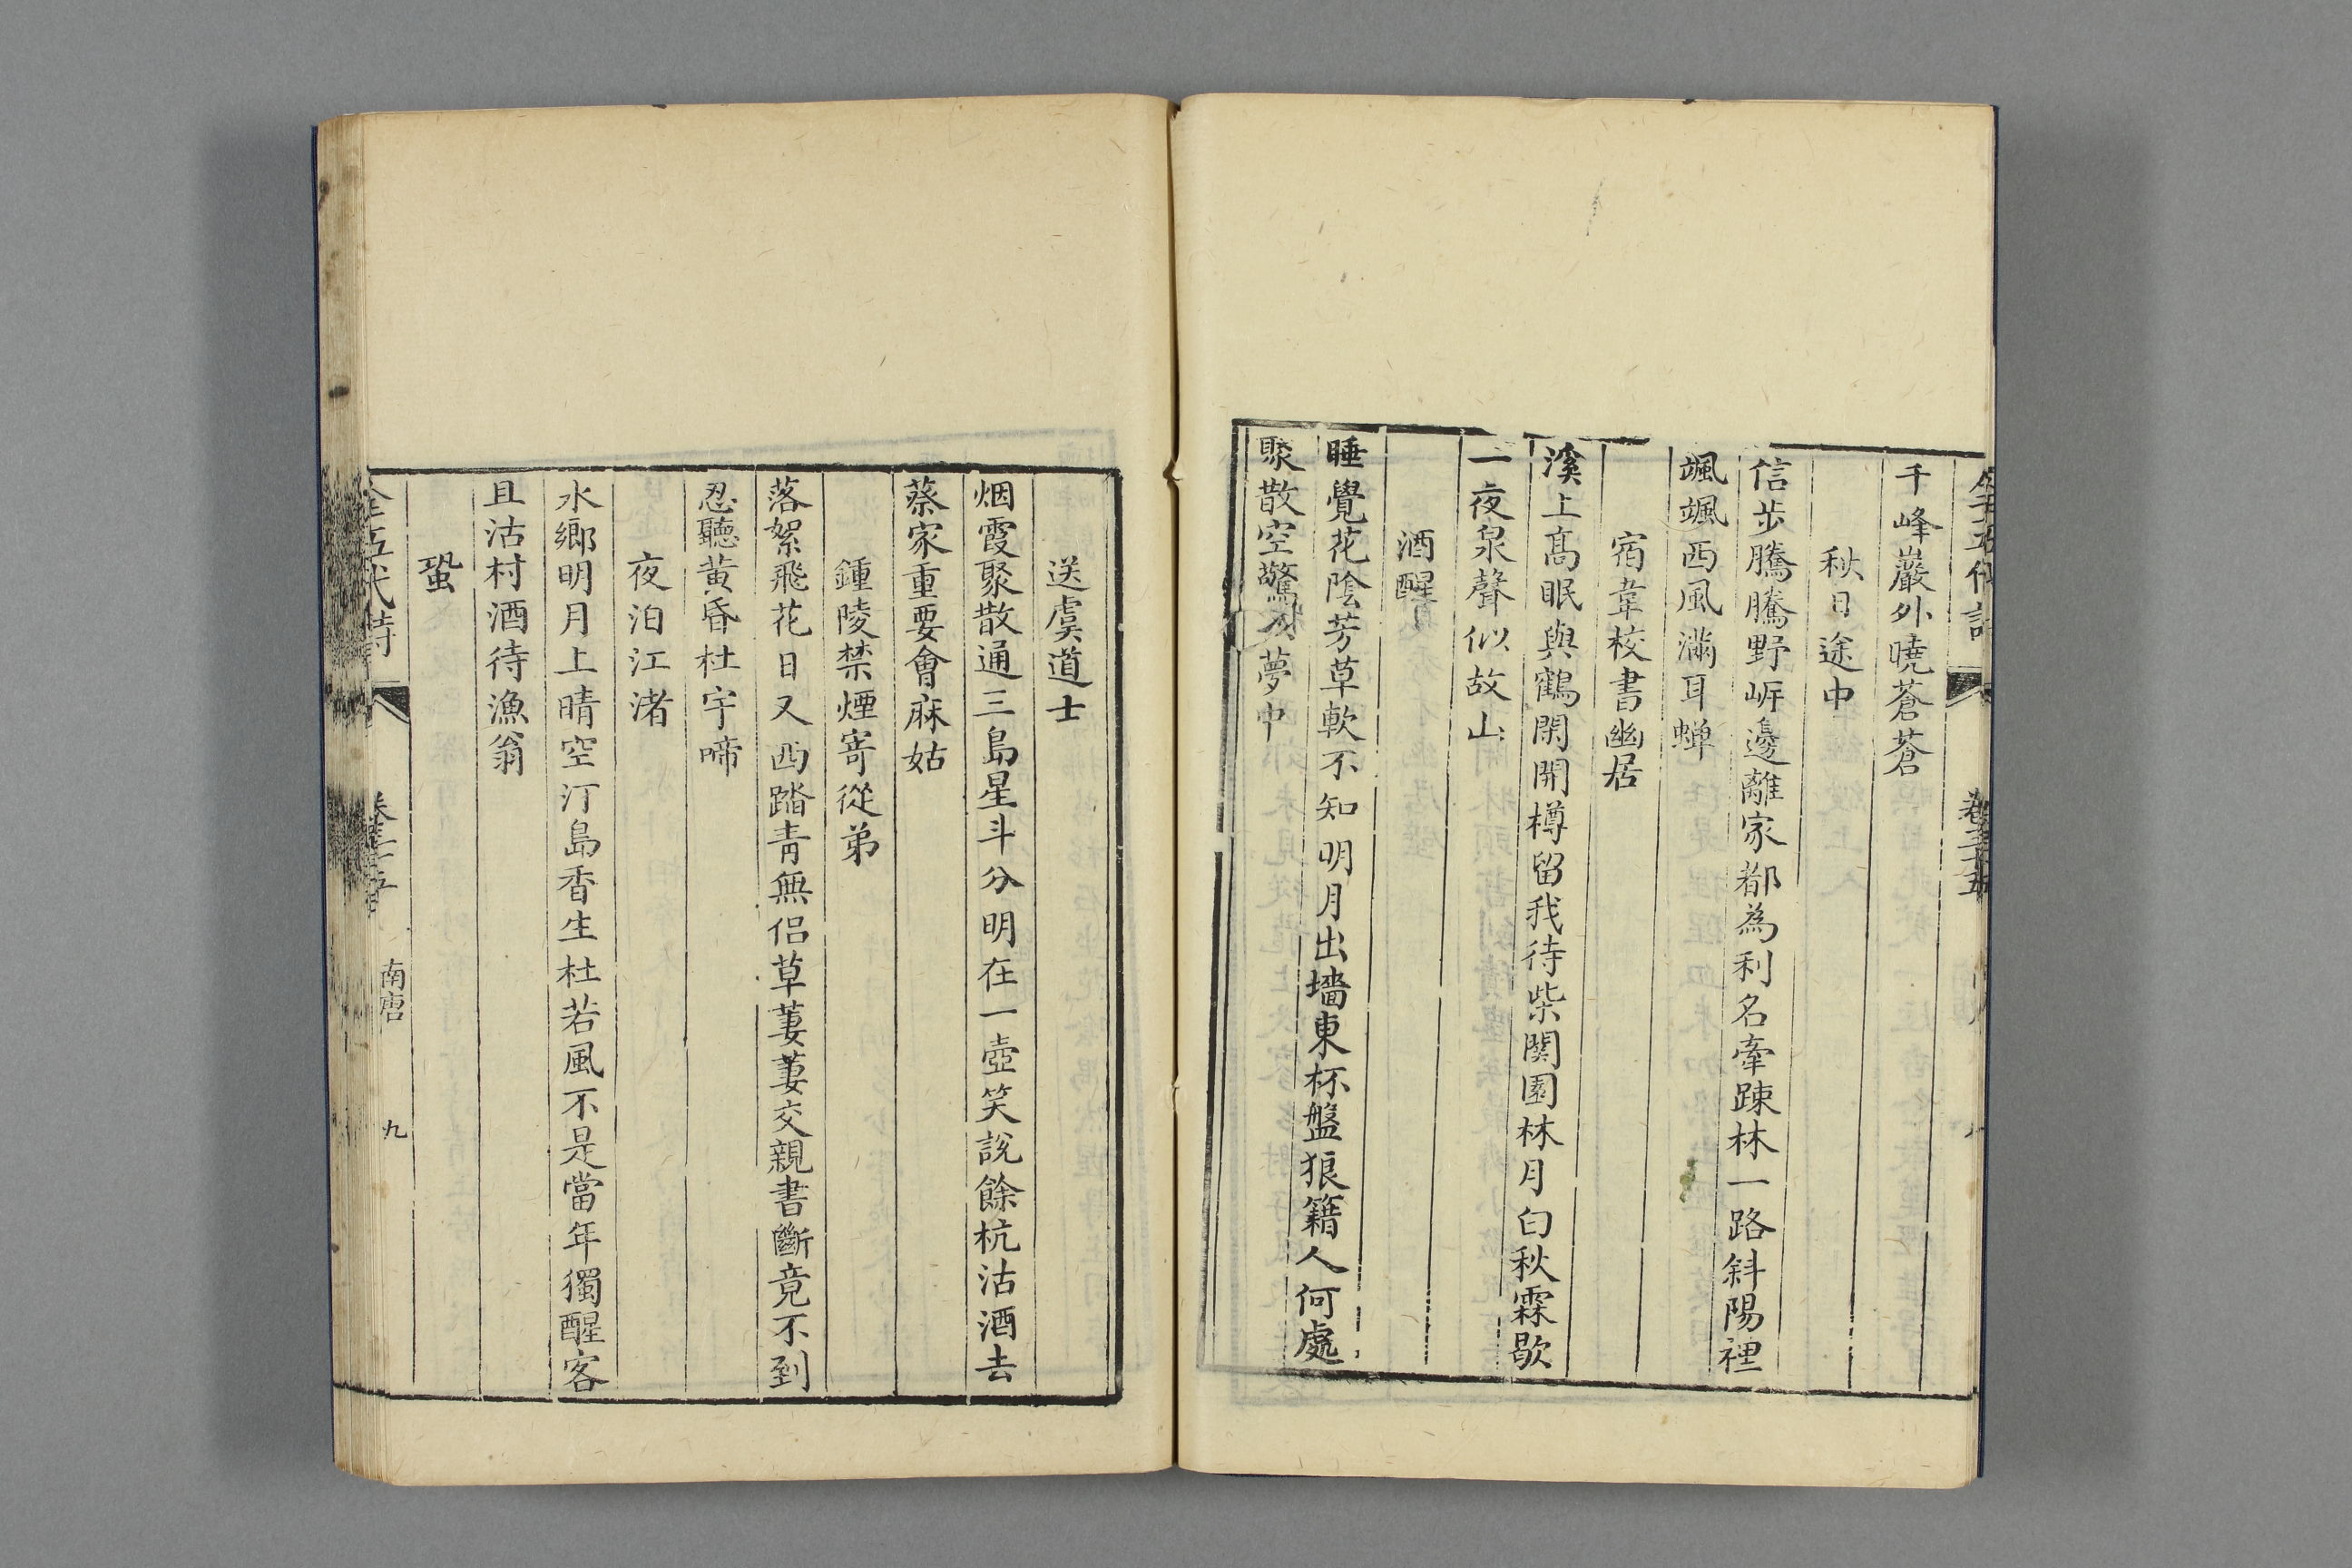 全五代詩
卷三十五
千峰巖外曉蒼蒼
秋日途中
信步騰騰野岍邊離家都為利名牽踈林一路斜陽裡
颯颯西風滿耳蟬
宿韋校書幽居
溪上高眠與鶴閑開樽留我待柴關園林月白秋霖歇
一夜泉聲似故山
酒醒
睡覺花陰芳草軟不知明月出墻東杯盤狼籍人何處
聚散空驚夢中
送虞道士
烟霞聚散通三島星斗分明在一壺笑說餘杭沽酒去
蔡家重要會麻姑
鍾陵禁煙寄從弟
落絮飛花日又西踏青無侶草萋萋交親書斷竟不到
忍聽黃昏杜宇啼
夜泊江渚
水鄉明月上晴空汀島香生杜若風不是當年獨醒客
且沽村酒待漁翁
蛩
全五代詩
卷三十五
南唐
九